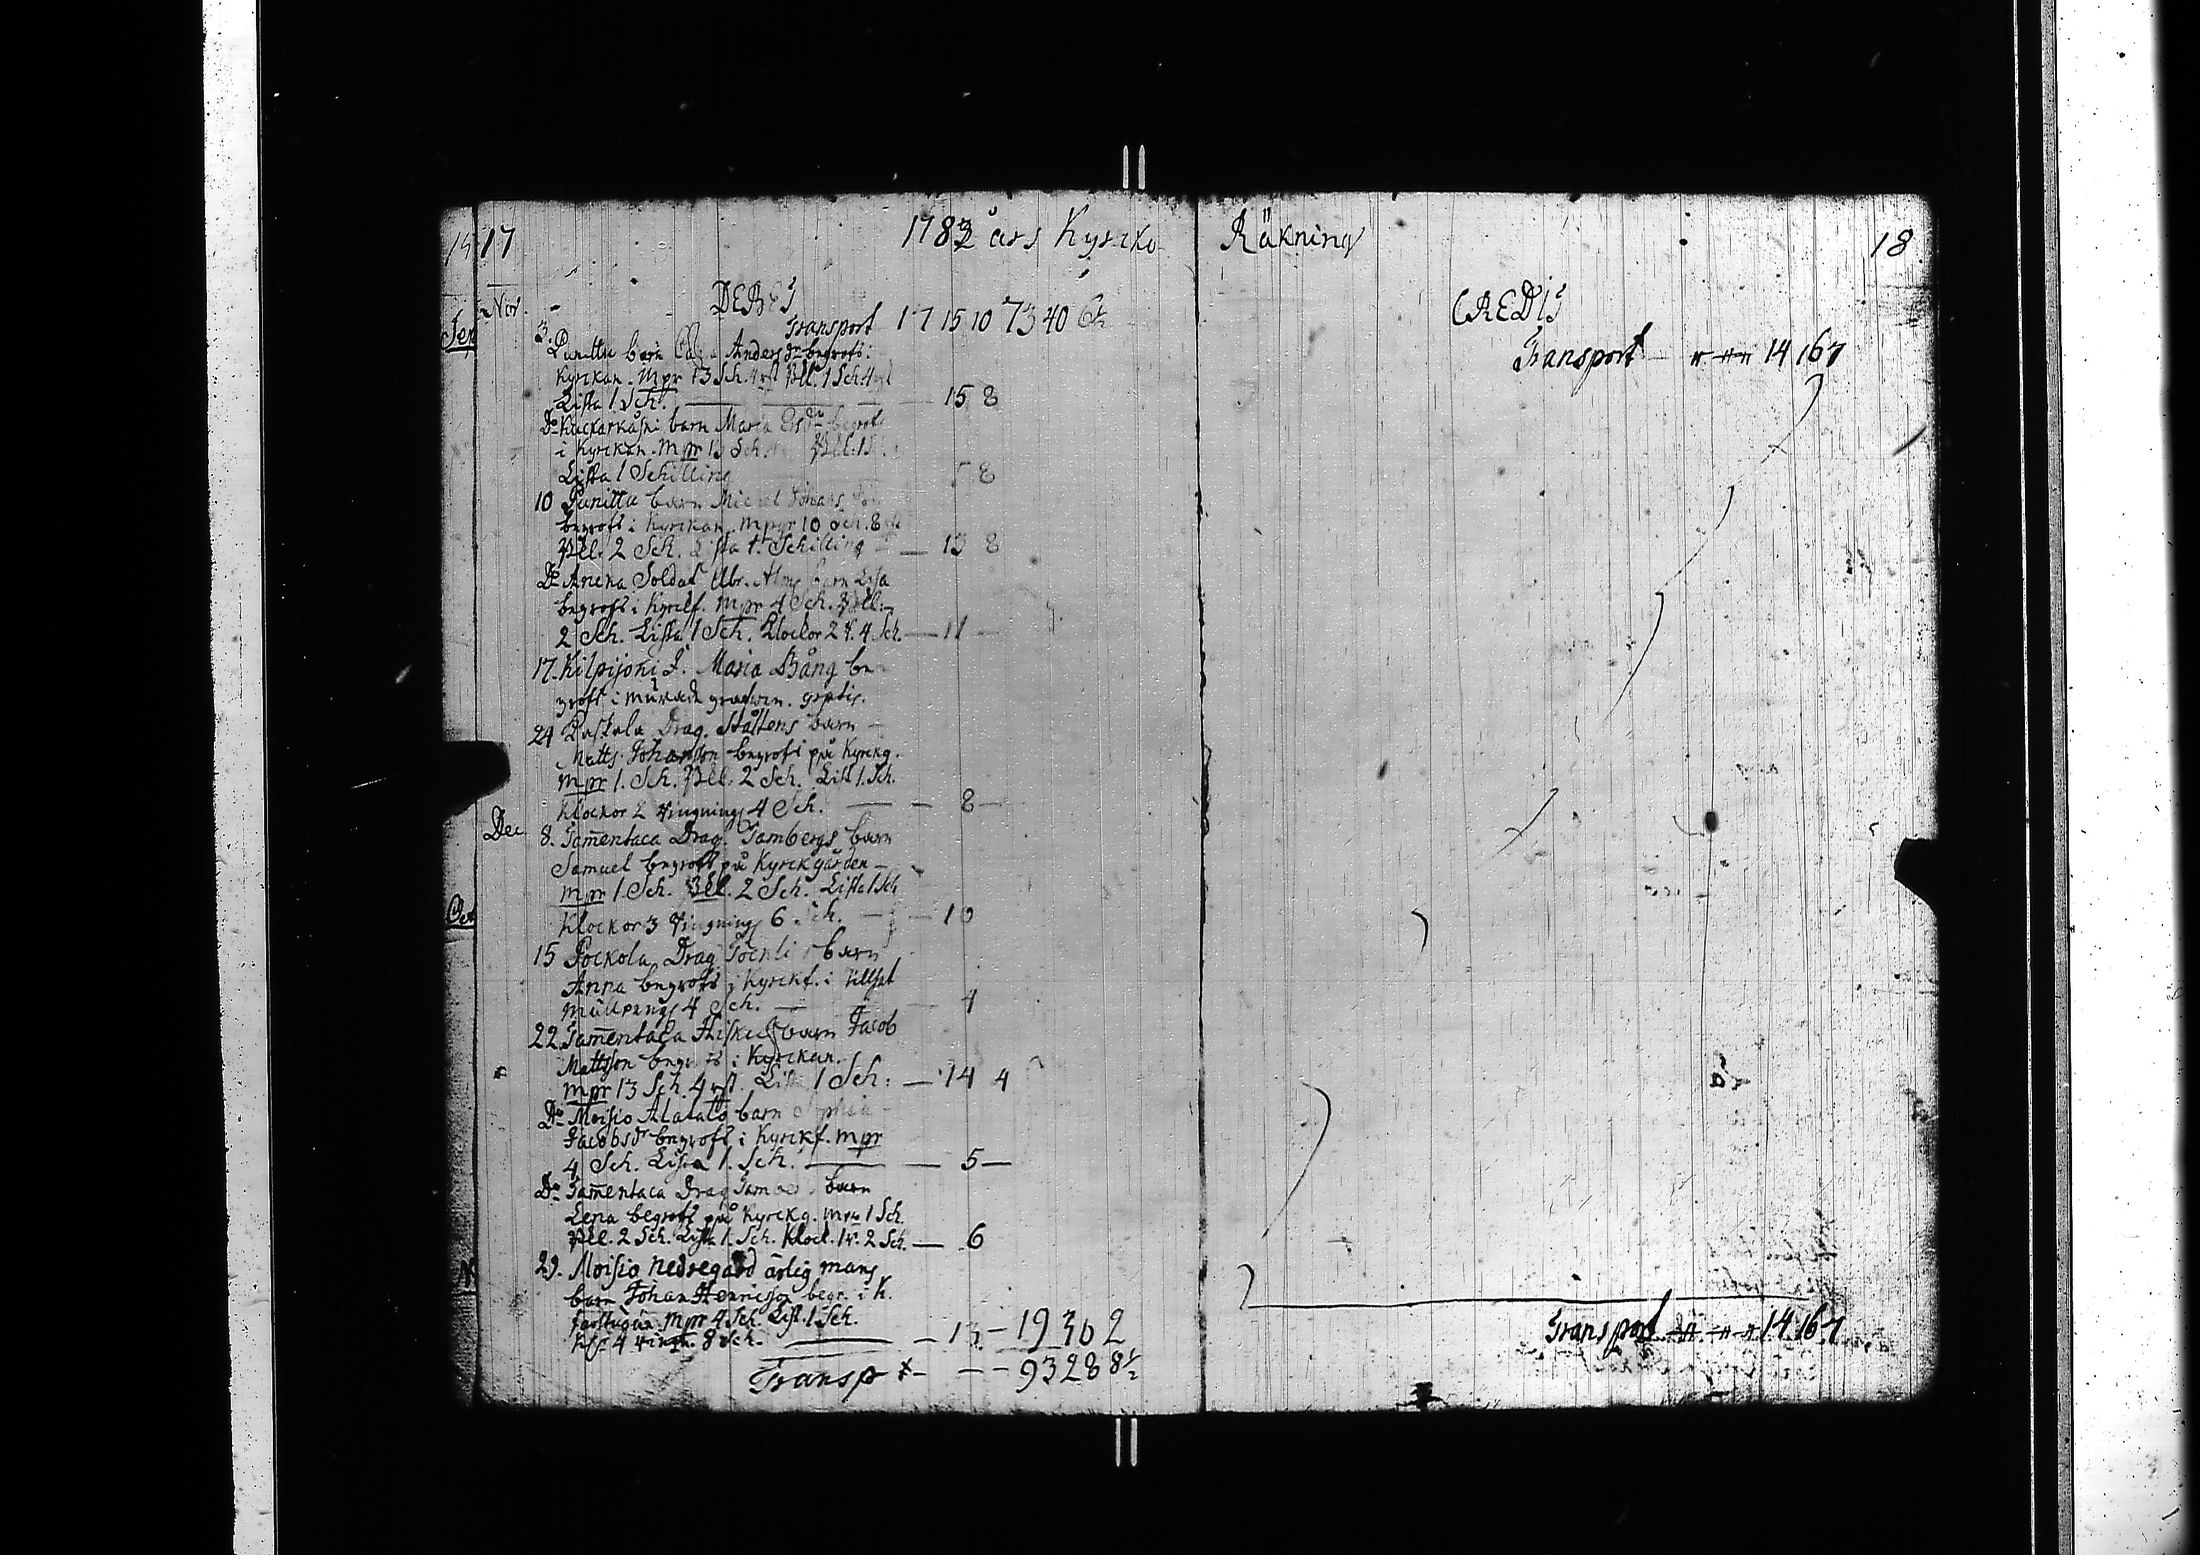 17
1782 års Kyrcko
Räkning
18
DEBET
CREDIT
Nov.
Transport 17 15 10 73 40 6½
Transport 14 16 7
3. Punittu barn Andersdr begrofs i
Kyrckan. Mpr 13 Sch. 4 rst Bll. 1 Sch. 4 rst
Lista 1 Sch. 15 8
Do barn Maria begrofs
i Kyrckan. Mpr 13 Sch. Bll. 1 S
Lista 1 Schilling 5 8
10 Punittu barn Michel Johans
begrofs i Kyrckan. Mpr 10 Sch. 8 rst
Bll. 2 Sch. Lista 1. Schilling 13 8
Do Anena Soldat Abr. barn Lisa
begrofs i Kyrckf. Mpr 4 Sch. Bll.
2 Sch. Lista 1 Sch. Klockor 2 r. 4 Sch. 11
17. Kilpijoki J. Maria Bång be
grofs i murade grafwen. gratis.
24 Drag. Ståltens barn
Matts Johansson begrofs på Kyrckg.
Mpr 1. Sch. Bll. 2 Sch. List. 1. Sch.
Klockor 2 ringnings 4 Sch. 8
Dec. 8. Tam̄entaca Drag. Tambergs barn
Samuel begrofs på Kyrckgården
Mpr 1. Sch. Bll. 2 Sch. Lista 1 Sch
Klockor 3 ringnings 6 Sch. 10
15 Pockola Drag barn
Anna begrofs i Kyrckf. i
Mullpengs 4 Sch. 4
22. Tam̄entaca barn Jacob
Mattsson begrofs i Kyrckan.
Mpr 13 Sch. 4 rst. List. 1 Sch: 14 4
Do Moisio Alatalo barn Sophia
Jacobsdr begrofs i Kyrckf. Mpr
4 Sch. Lista 1. Sch. 5
Do Tam̄entaca Drag barn
Lena begrofs på Kyrckg. Mpr 1 Sch.
Bll. 2 Sch. Lista 1. Sch. Klock. 1 r. 2 Sch. 6
29. Moisio nedregård ärlig mans
barn Johan Henricsson begr. i K.
farstugun. Mpr 4 Sch. List. 1 Sch.
4 ringn. 8 Sch. 13 19 30 2
Transp 93 28 8½
Transport 14 16 7